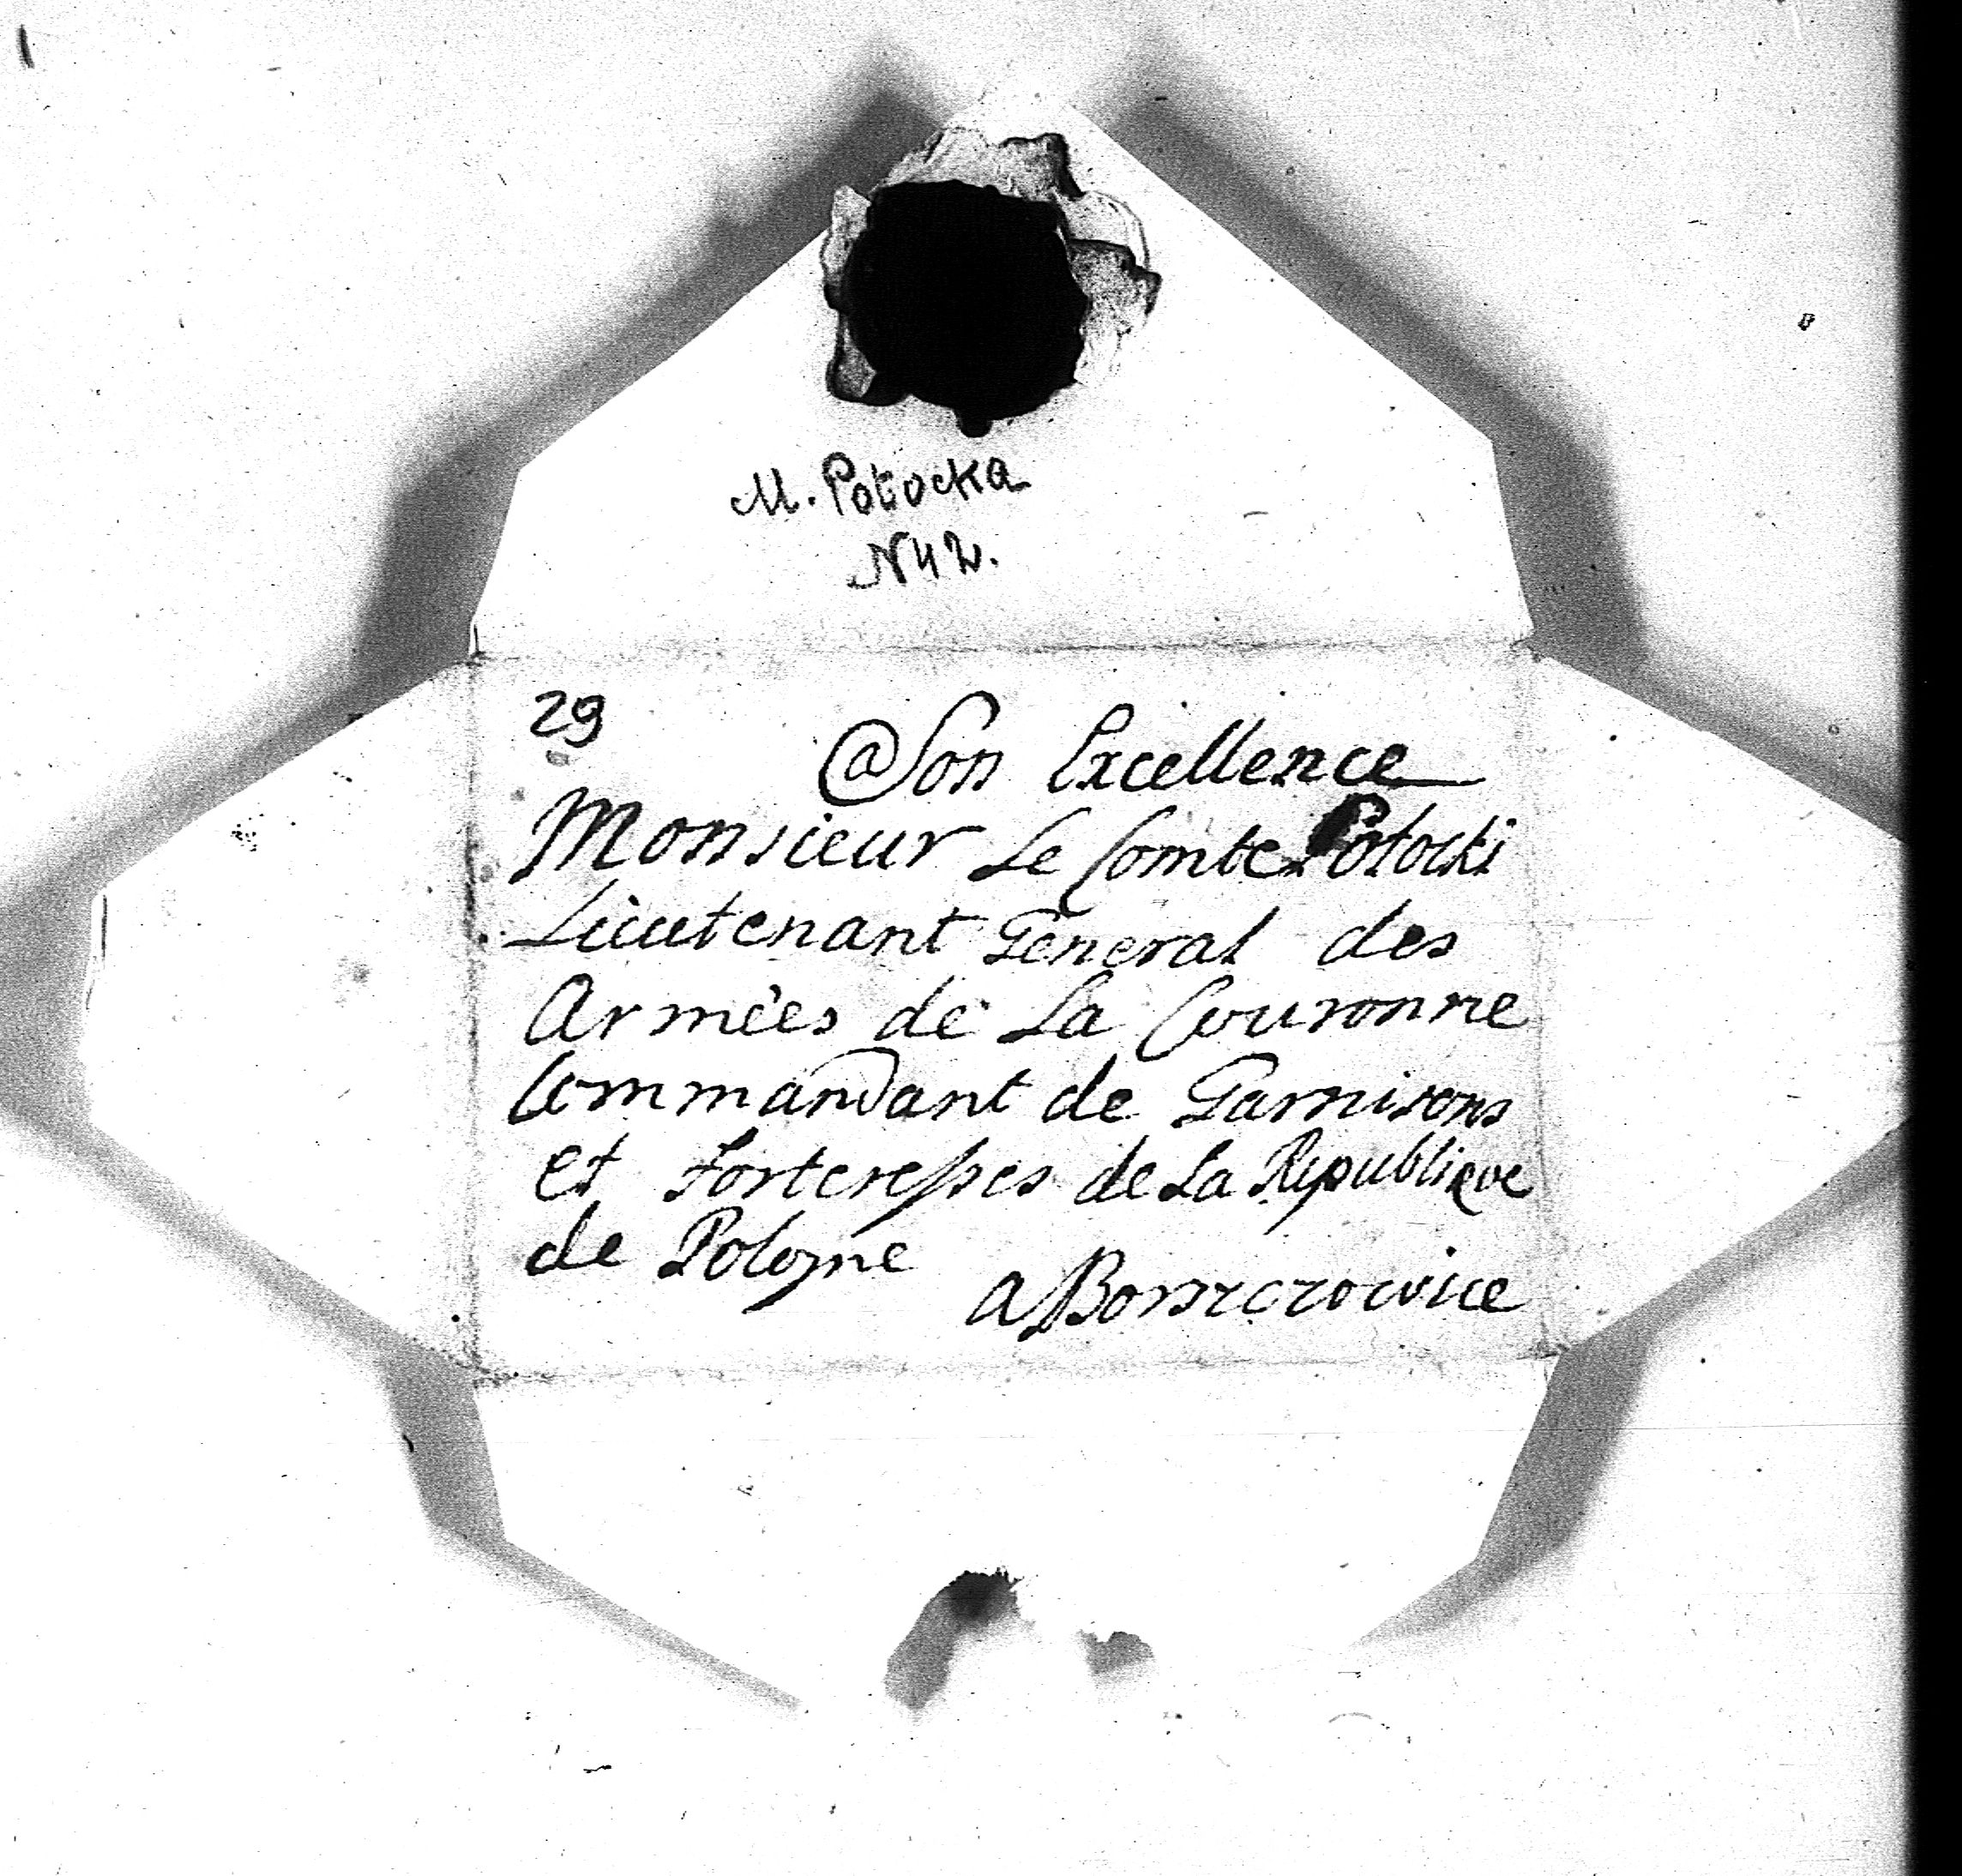 M. Potocka
N 42.
29
A Son Excellence
Monsieur Le Comte Potocki
Lieutenant General des
Armées de La Couronne
Commandant de Garnisons
et Forteresses de La Republique
de Pologne
a Borszczowice